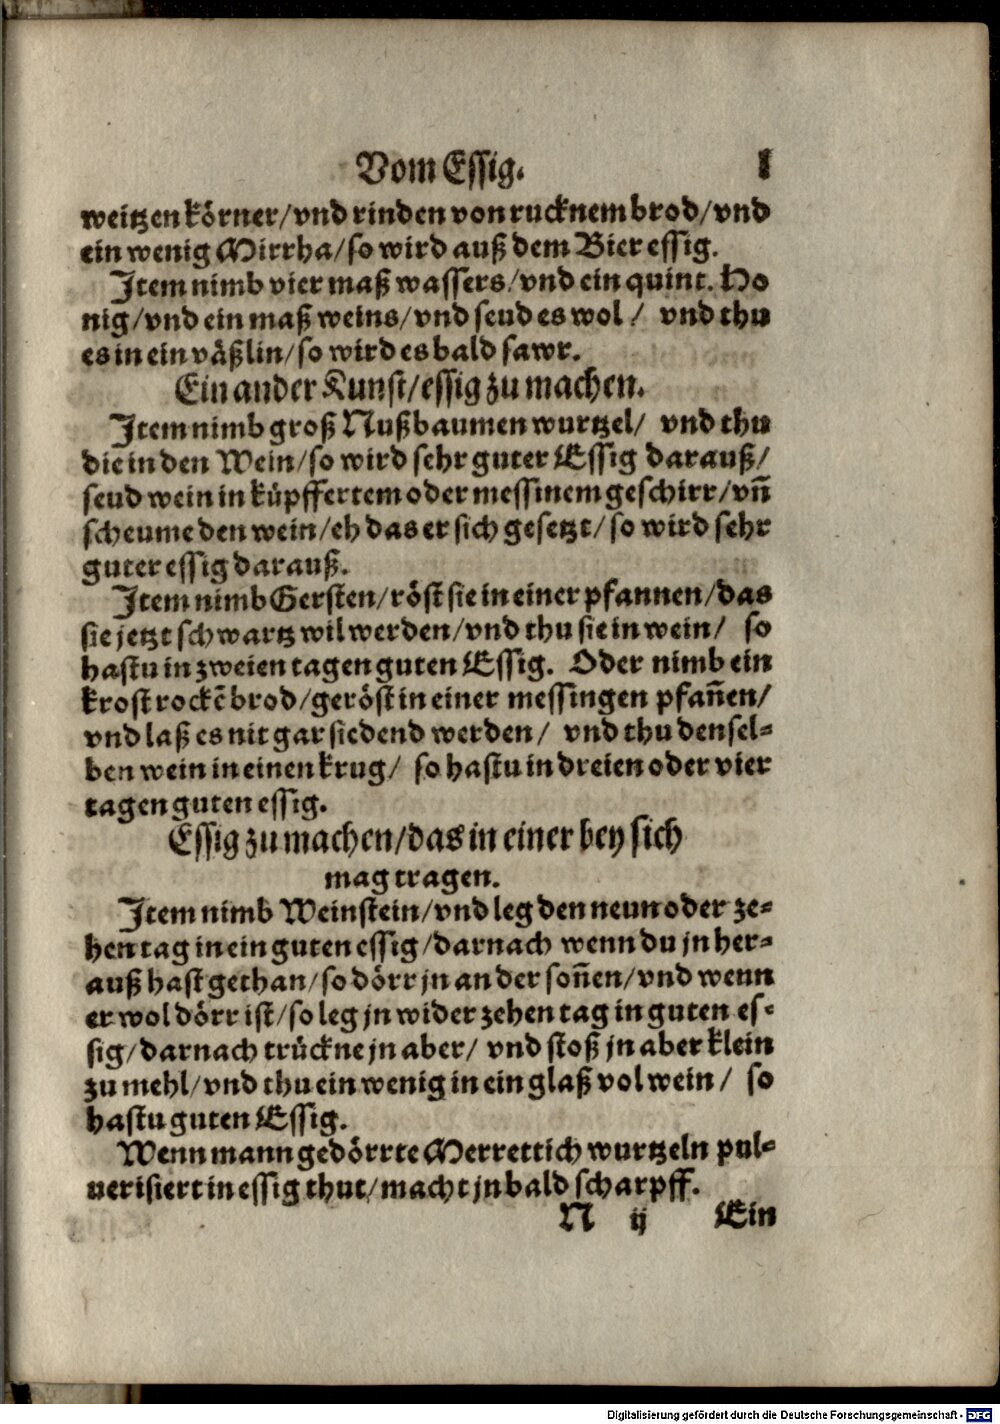 Vom Essig. l
weitzen körner/vnd rinden von rucknem brod/vnd
ein wenig Mirrha/so wird auß dem Bier essig.
Item nimb vier maß wassers/vnd ein quint. Ho
nig/vnd ein maß weins/vnd seud es wol/ vnd thu
es in ein väßlin/so wird es bald sawr.
Ein ander Kunst/essig zu machen.
Item nimb groß Nußbaumen wurtzel/ vnd thu
die in den Wein/so wird sehr guter Essig darauß/
seud wein in küpffertem oder messinem geschirr/vn̄
scheume den wein/eh das er sich gesetzt/so wird sehr
guter essig darauß.
Item nimb Gersten/röst sie in einer pfannen/das
sie jetzt schwartz wil werden/vnd thu sie in wein/ so
hastu in zweien tagen guten Essig. Oder nimb ein
krost rockē brod/geröst in einer messingen pfan̄en/
vnd laß es nit gar siedend werden/ vnd thu densel-
ben wein in einen krug/ so hastu in dreien oder vier
tagen guten essig.
Essig zu machen/das in einer bey sich
mag tragen.
Item nimb Weinstein/vnd leg den neun oder ze-
hen tag in ein guten essig/darnach wenn du jn her-
auß hast gethan/so dörr jn an der son̄en/vnd wenn
er wol dörr ist/so leg jn wider zehen tag in guten es-
sig/darnach trückne jn aber/ vnd stoß jn aber klein
zu mehl/vnd thu ein wenig in ein glaß vol wein/ so
hastu guten Essig.
Wenn mann gedörrte Merrettich wurtzeln pul-
uerisiert in essig thut/macht jn bald scharpff.
N ij Ein
Digitalisierung gefördert durch die Deutsche Forschungsgemeinschaft - DFG